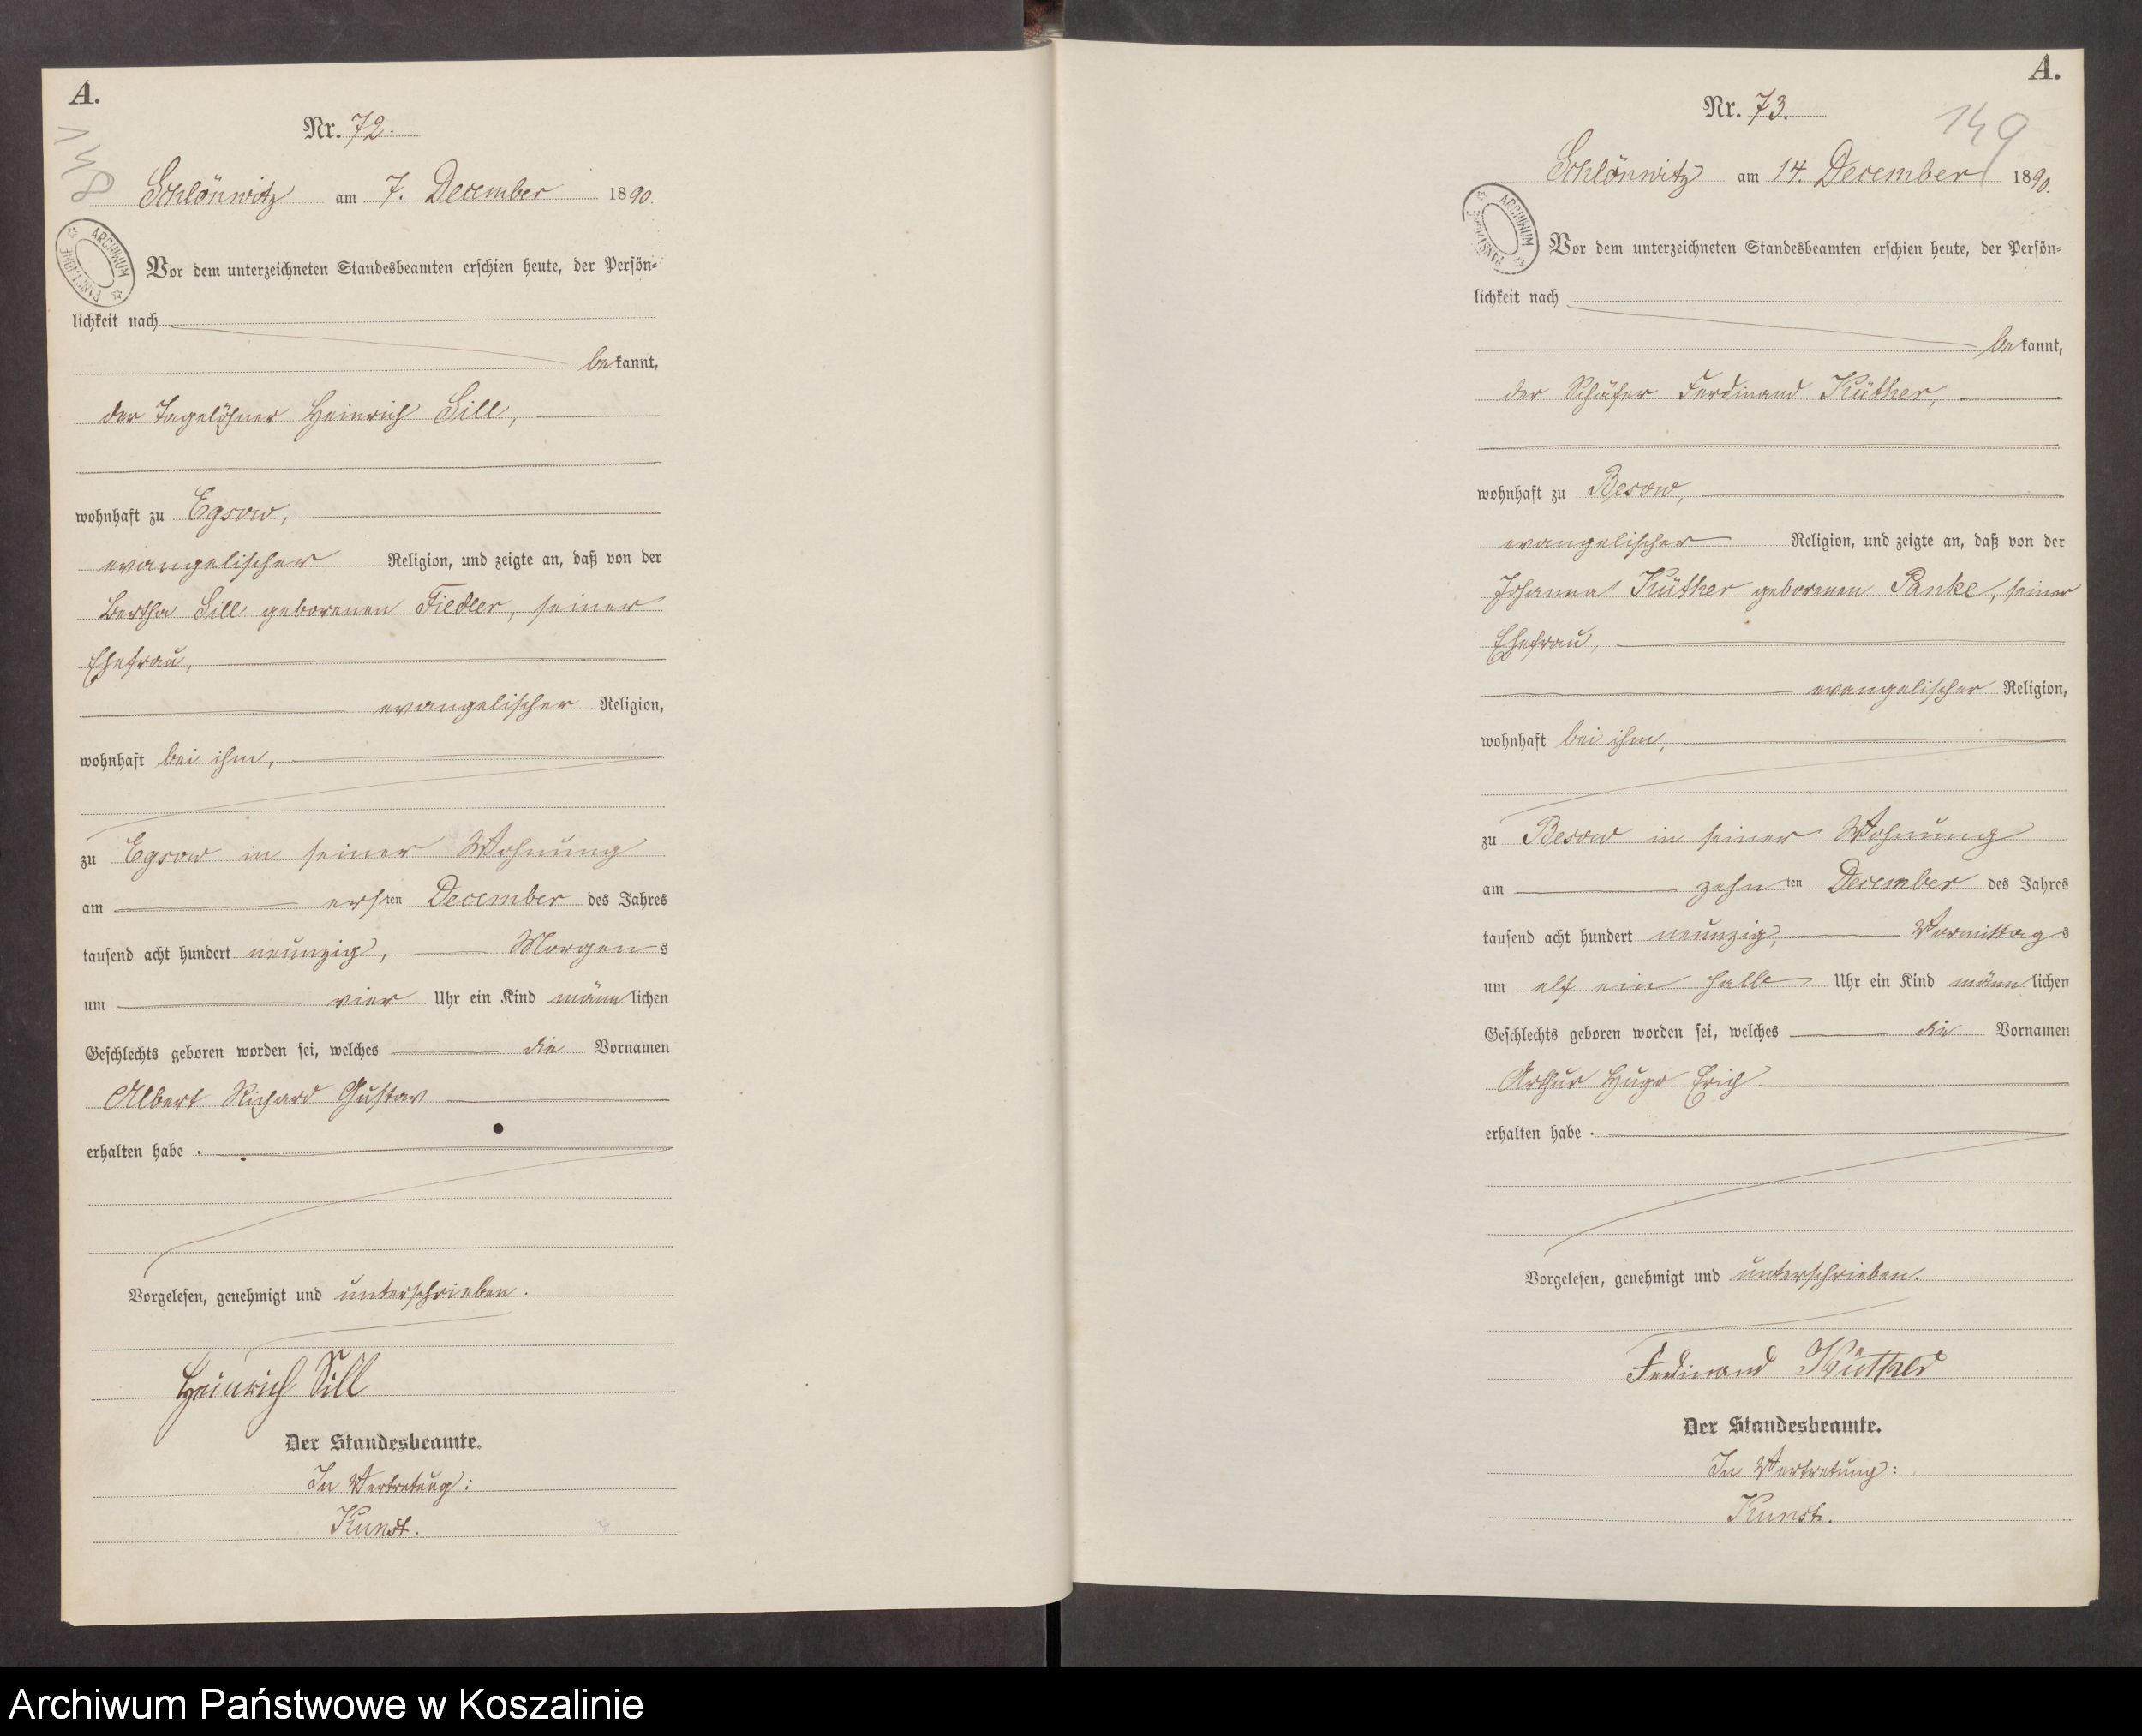 A.
148
Nr. 72.
Schlönwitz am 7. December 1890.
ARCHIWUM PAŃSTWOWE
Vor dem unterzeichneten Standesbeamten erschien heute, der Persön=
lichkeit nach
bekannt,
der Tagelöhner Heinrich Sill,
wohnhaft zu Egsow,
evangelischer Religion, und zeigte an, daß von der
Bertha Sill geborenen Fiedler, seiner
Ehefrau,
evangelischer Religion,
wohnhaft bei ihm,
zu Egsow in seiner Wohnung
am ersten December des Jahres
tausend acht hundert neunzig, Morgens
um vier Uhr ein Kind männlichen
Geschlechts geboren worden sei, welches die Vornamen
Albert Richard Gustav
erhalten habe.
Vorgelesen, genehmigt und unterschrieben.
Heinrich Sill
Der Standesbeamte.
In Vertretung:
Kunst.
A.
149
Nr. 73.
Schlönwitz am 14. December 1890.
ARCHIWUM PAŃSTWOWE
Vor dem unterzeichneten Standesbeamten erschien heute, der Persön=
lichkeit nach
bekannt,
der Schäfer Ferdinand Küther,
wohnhaft zu Besow,
evangelischer Religion, und zeigte an, daß von der
Johanna Küther geborenen Panke, seiner
Ehefrau,
evangelischer Religion,
wohnhaft bei ihm,
zu Besow in seiner Wohnung
am zehnten December des Jahres
tausend acht hundert neunzig, Vormittags
um elf ein halb Uhr ein Kind männlichen
Geschlechts geboren worden sei, welches die Vornamen
Arthur Hugo Erich
erhalten habe.
Vorgelesen, genehmigt und unterschrieben.
Ferdinand Küther
Der Standesbeamte.
In Vertretung:
Kunst.
Archiwum Państwowe w Koszalinie